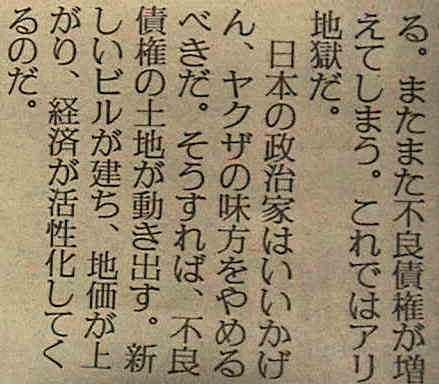 る。またまた不良債権が増
えてしまう。これではアリ
地獄だ。
日本の政治家はいいかげ
ん、ヤクザの味方をやめる
べきだ。そうすれば、不良
債権の土地が動き出す。新
しいビルが建ち、地価が上
がり、経済が活性化してく
るのだ。